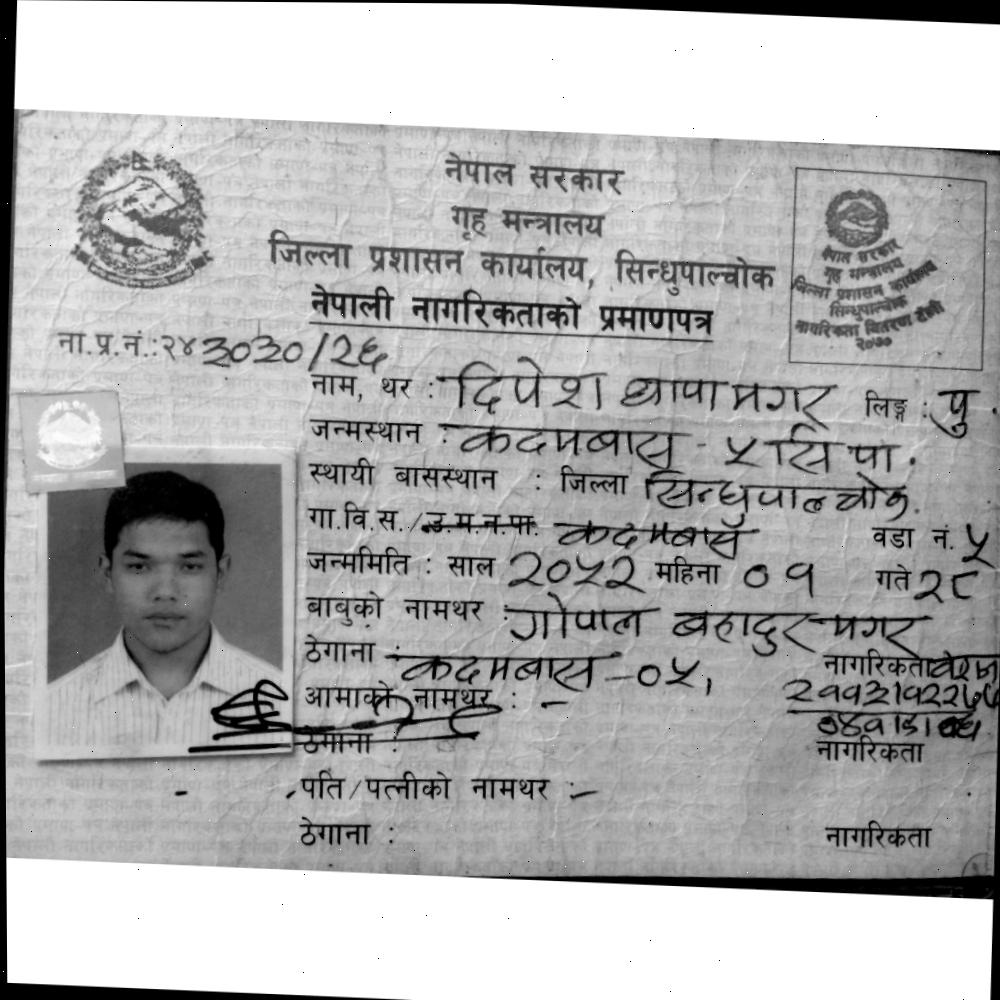 नेपाल सरकार
गृह मन्त्रालय
जिल्ला प्रशासन कार्यालय, सिन्धुपाल्चोक
नेपाली नागरिकताको प्रमाणपत्र
नेपाल सरकार
गृह मन्त्रालय
जिल्ला प्रशासन कार्यालय
सिन्धुपाल्चोक
नागरिकता वितरण टोली
२०७०
ना.प्र.नं.:२४३०३०/२६
नाम, थर : दिपेश थापा मगर लिङ्ग : पु.
जन्मस्थान : कदमबास - ५ सि पा.
स्थायी बासस्थान : जिल्ला सिन्धुपाल चोक.
गा.वि.स./उ.म.न.पा. कदमबास वडा नं. ५
जन्ममिति : साल २०५२ महिना ०१ गते २८
बाबुको नामथर : गोपाल बहादुर मगर
ठेगाना : कदमबास - ०५, नागरिकता
आमाको नामथर : -
ठेगाना : नागरिकता
पति/पत्नीको नामथर :-
ठेगाना : नागरिकता